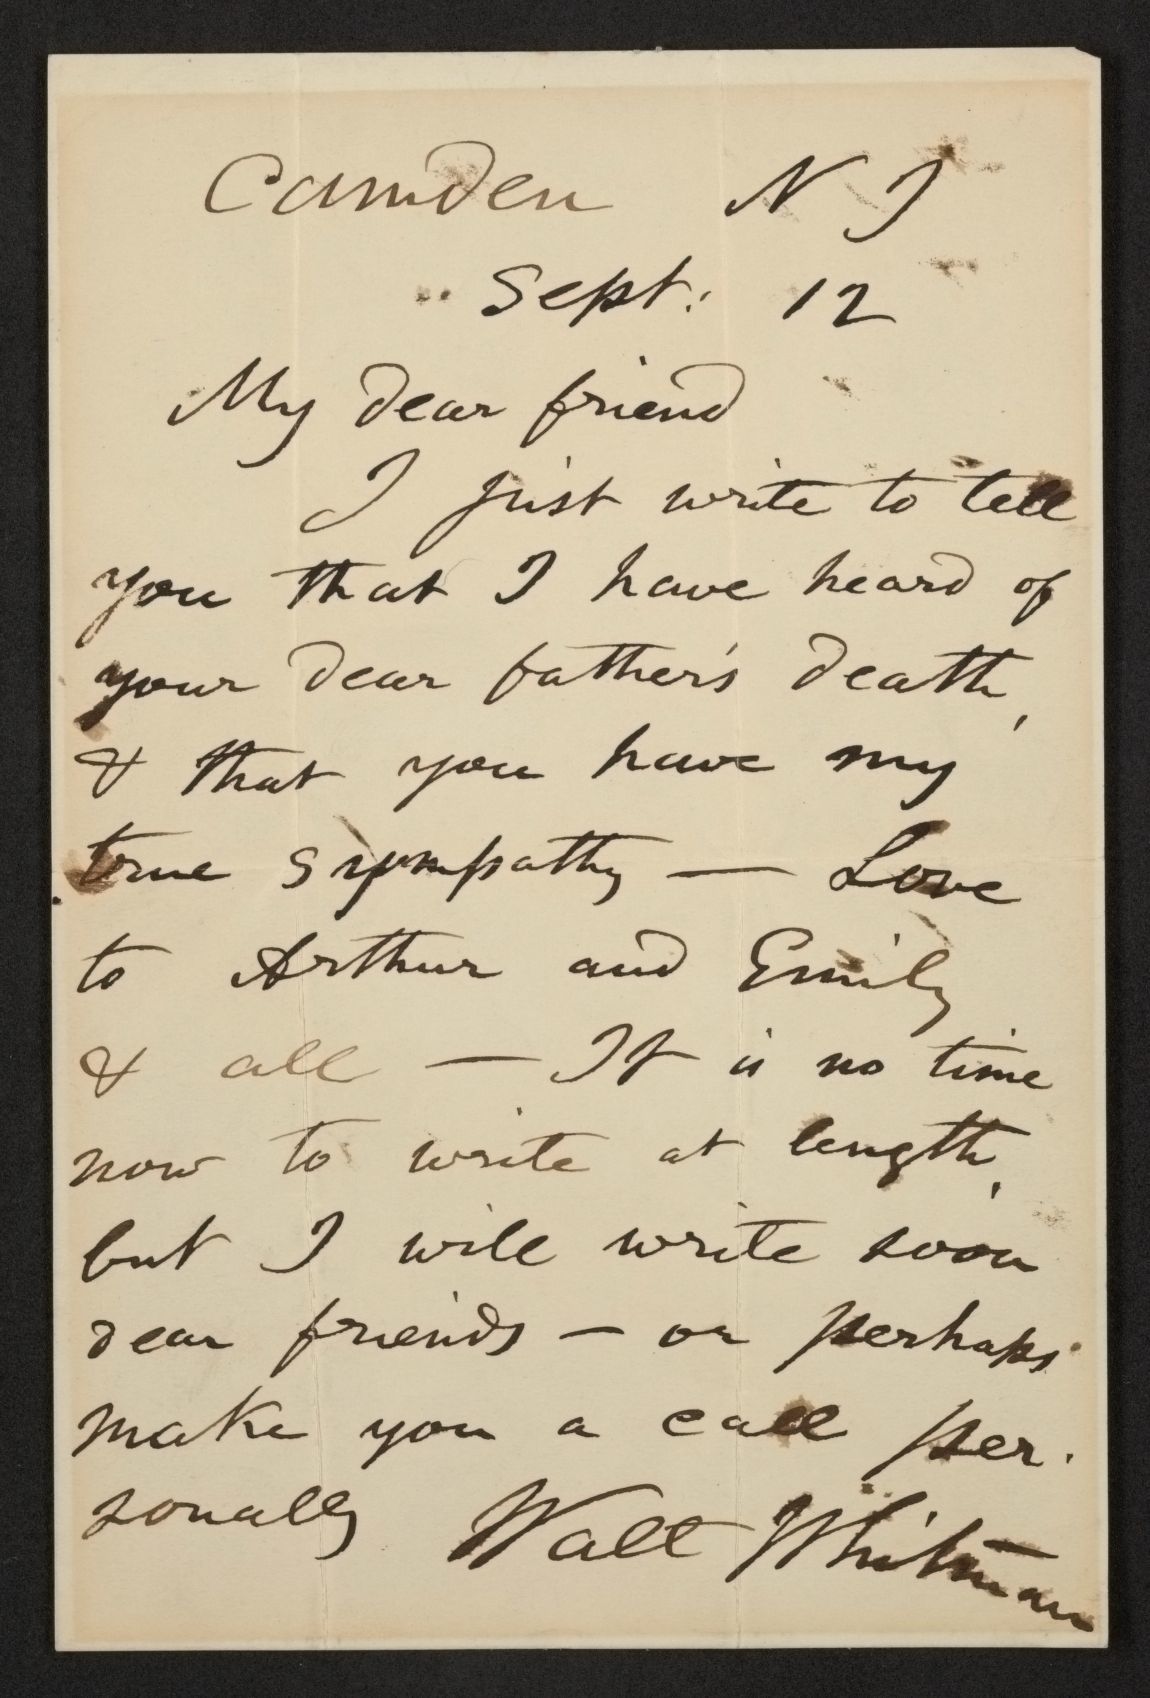 Camden N J
Sept: 12
My dear friend
I just write to tell
you that I have heard of
your dear father's death,
& that you have my
true sympathy — Love
to Arthur and Emily
& all — It is no time
now to write at length,
but I will write soon
dear friends — or perhaps
make you a call per-
sonally Walt Whitman